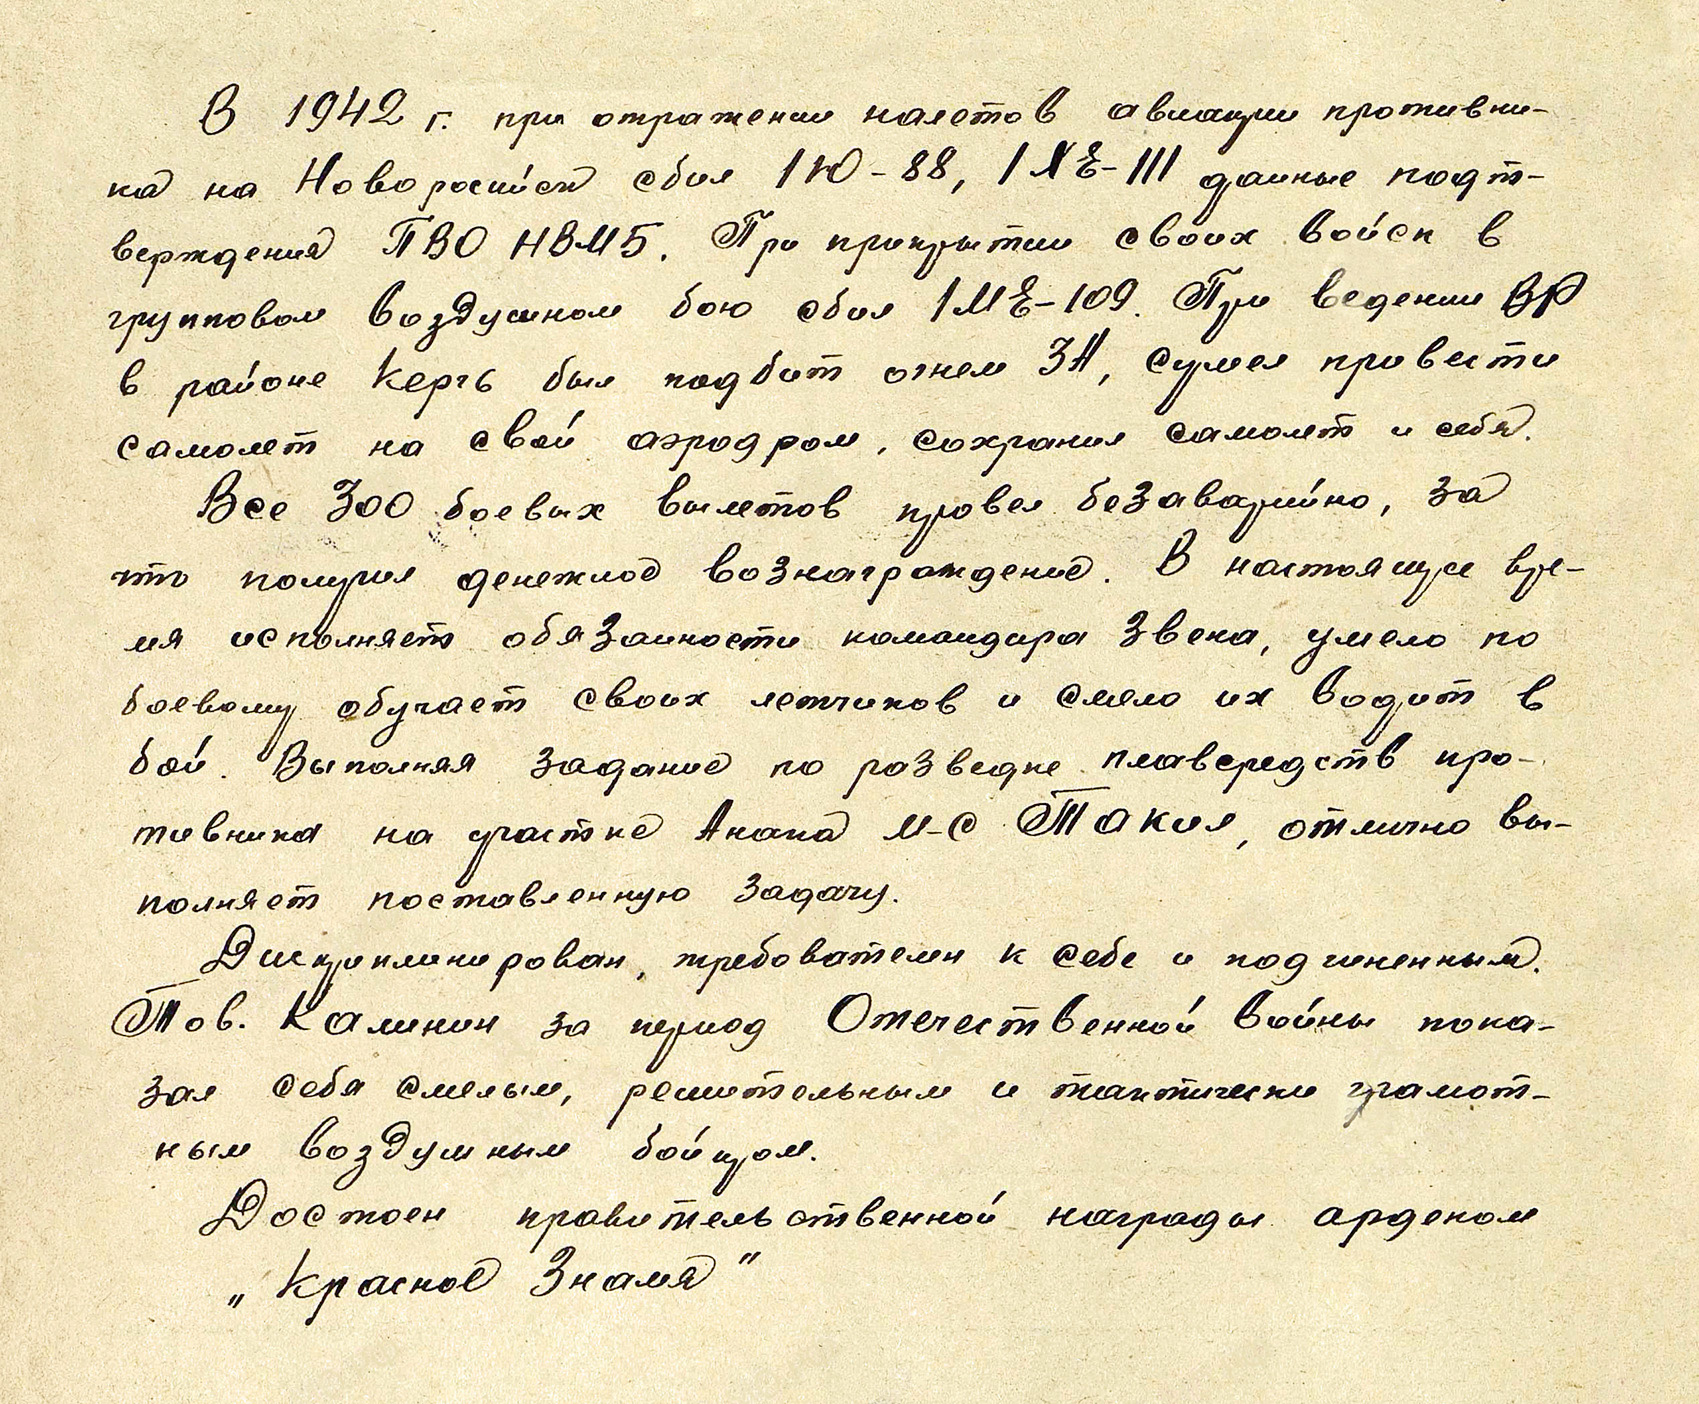 В 1942 г. при отражении налетов авиации противни-
ка на Новоросийск сбил 1 Ю-88, 1 ХЕ-111 данные подт-
верждения ПВО НВМБ. При прикрытии своих войск в
групповом воздушном бою сбил 1 МЕ-109. При ведении ВР
в районе Керчь был подбит огнем ЗА, сумел привести
самолет на свой аэродром, сохранил самолет и себя.
Все 300 боевых вылетов провел безаварийно, за
что получил денежное вознаграждение. В настоящее вре-
мя исполняет обязанности командира звена, умело по
боевому обучает своих летчиков и смело их водит в
бой. Выполняя задание по разведке плавсредств про-
тивника на участке Анапа м-с Такил, отлично вы-
полняет поставленную задачу.
Дисциплинирован, требователен к себе и подчиненным.
Тов. Калинин за период Отечественной войны пока-
зал себя смелым, решительным и тактически грамот-
ным воздушным бойцом.
Достоен правительственной награды орденом
„Красное Знамя"